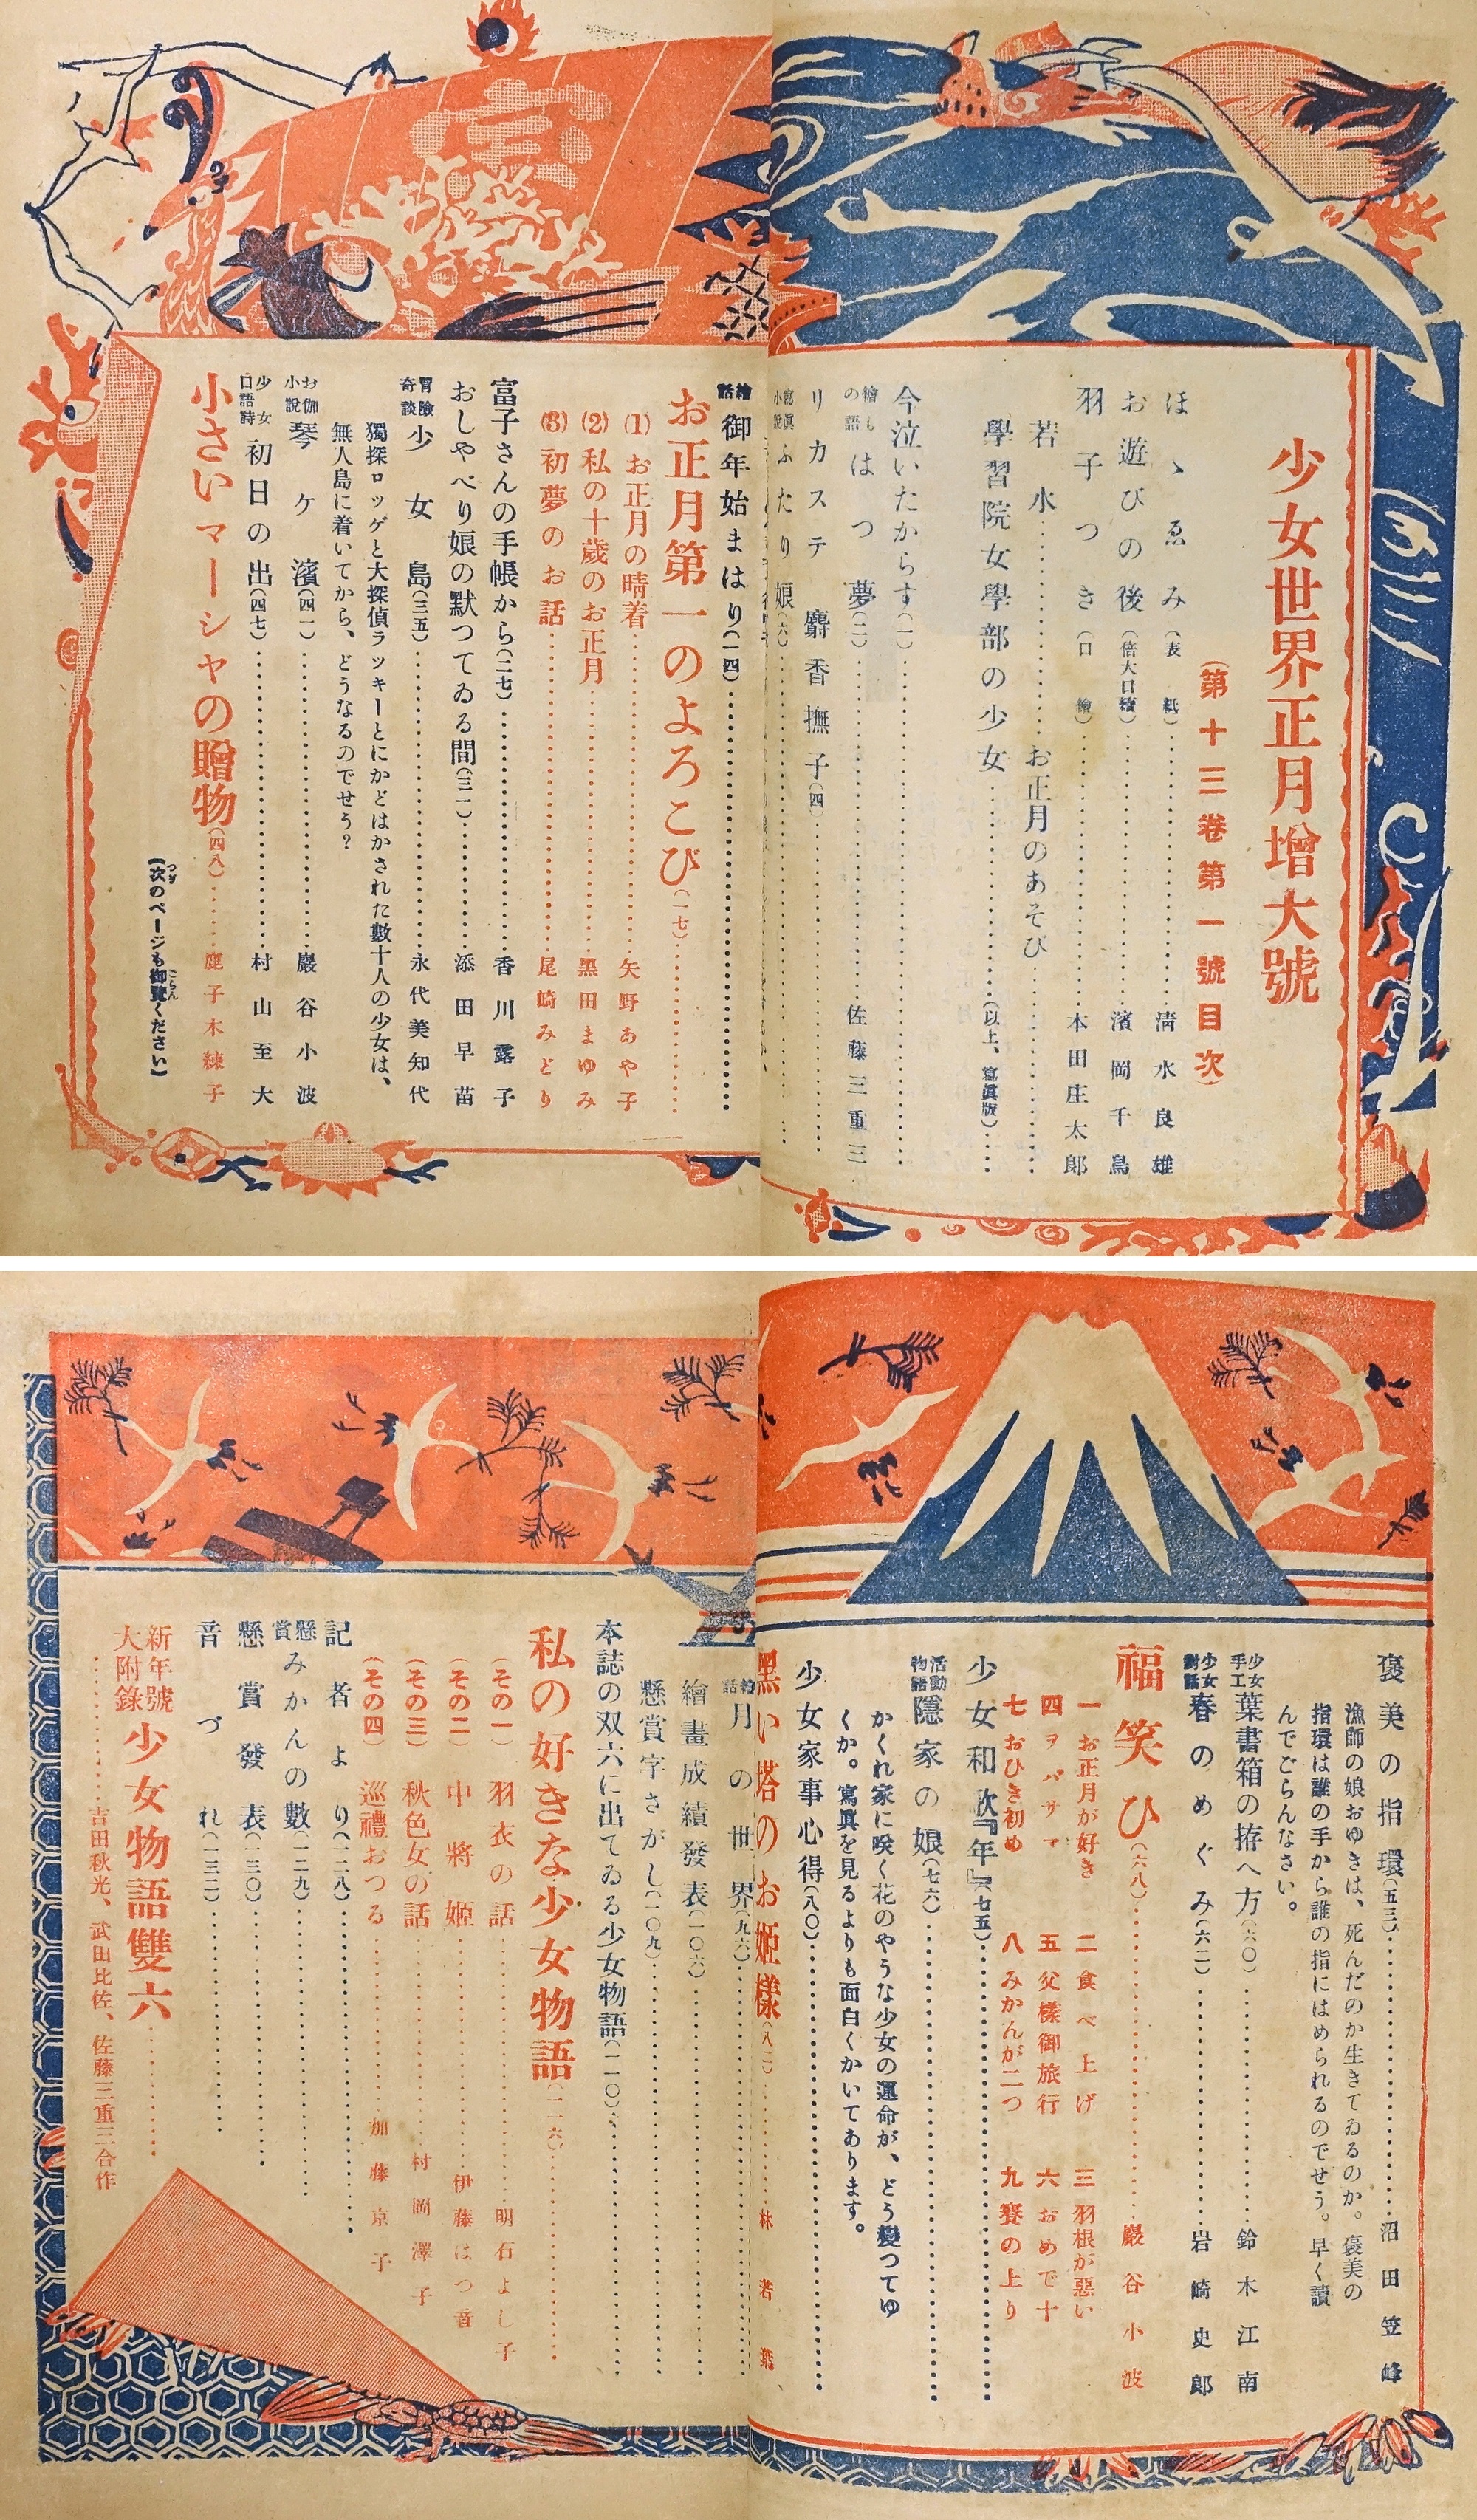 少女世界正月增大號
(第十三卷第一號目次)
ほゝゑみ(表紙)……淸水良雄
お遊びの後(倍大口繪)……濱岡千鳥
羽子つき(口繪)……本田庄太郞
若水……お正月のあそび……
學習院女學部の少女……(以上、寫眞版)……
今泣いたからす(一)……
繪ものの語 はつ夢(二)……佐藤三重三
リカステ 麝香撫子(四)……
寫眞小說 ふたり娘(六)……
繪話 御年始まはり(一四)……
お正月第一のよろこび(一七)……
(1)お正月の晴着……矢野あや子
(2)私の十歲のお正月……黑田まゆみ
(3)初夢のお話……尾崎みどり
富子さんの手帳から(二七)……香川露子
おしやべり娘の默つてゐる間(三一)……添田早苗
冒險奇談 少女島(三五)……永代美知代
獨探ロッゲと大探偵ラッキーとにかどはかされた數十人の少女は、
無人島に着いてから、どうなるのでせう?
お伽小說 琴ケ濱(四一)……巖谷小波
少女口語詩 初日の出(四七)……村山至大
小さいマーシャの贈物(四八)……鹿子木綠子
(次のページも御覽ください)
褒美の指環(五三)……沼田笠峰
漁師の娘おゆきは、死んだのか生きてゐるのか。褒美の
指環は誰の手から誰の指にはめられるのでせう。早く讀
んでごらんなさい。
少女手工 葉書箱の拵へ方(六〇)……鈴木江南
少女對話 春のめぐみ(六二)……岩崎史郞
福笑ひ(六八)……巖谷小波
一 お正月が好き 二 食べ上げ 三 羽根が惡い
四 ヲバサマ 五 父樣御旅行 六 おめで十
七 おひき初め 八 みかんが二つ 九 賽の上り
少女和歌『年』(七五)……
活動物語 隱家の娘(七六)……
かくれ家に咲く花のやうな少女の運命が、どう變つてゆ
くか。寫眞を見るよりも面白くかいてあります。
少女家事心得(八〇)……
黑い塔のお姬樣(八二)……林若葉
繪話 月の世界(九六)……
繪畫成績發表(一〇六)……
懸賞字さがし(一〇九)……
本誌の双六に出てゐる少女物語(一一〇)……
私の好きな少女物語(一一六)……
(その一) 羽衣の話……明石よし子
(その二) 中將姬……伊藤はつ音
(その三) 秋色女の話……村岡澤子
(その四) 巡禮おつる……加藤京子
記者より(一二八)……
懸賞 みかんの數(一二九)……
懸賞發表(一三〇)……
音づれ(一三二)……
新年號大附錄 少女物語雙六……
……吉田秋光、武田比佐、佐藤三重三合作